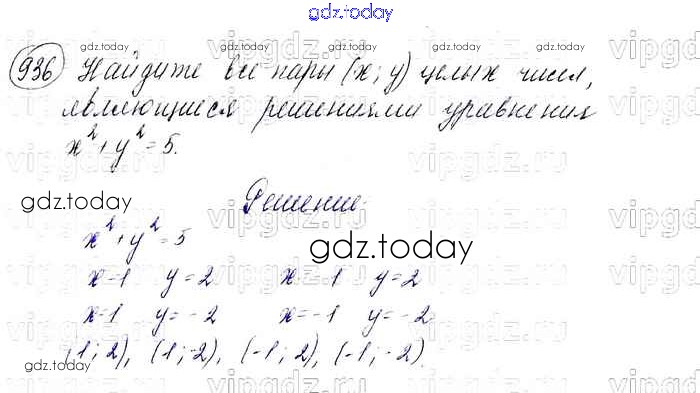 gdz.today
936 Найдите все пары (x; y) целых чисел,
являющиеся решениями уравнения
x² + y² = 5.
Решение:
x² + y² = 5
x=1 y=2 x=-1 y=2
x=1 y=-2 x=-1 y=-2
(1; 2), (1; -2), (-1; 2), (-1; -2)
gdz.today
gdz.today
gdz.today
gdz.today
gdz.today
gdz.today
gdz.today
gdz.today
vipgdz
vipgdz
vipgdz
vipgdz